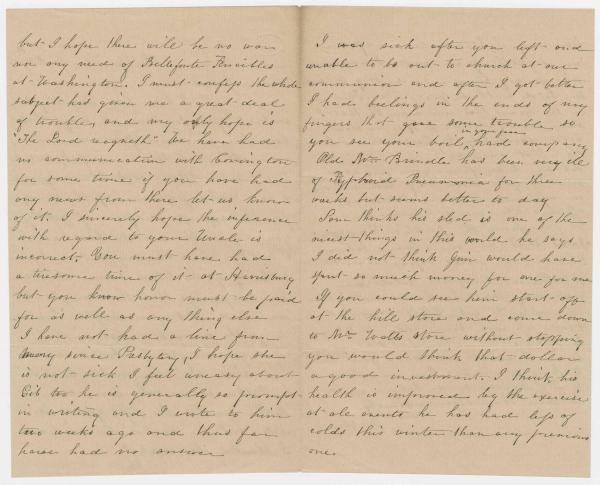 but I hope there will be no war
nor any need of Bellefonte Fencibles
at Washington. I must confess the whole
subject has given me a great deal
of trouble, and my only hope is
"The Lord reigneth" We have had
no communication with Covington
for some time if you have had
any news from there let us know
of it. I sincerely hope the inference
with regard to your Uncle is
incorrect. You must have had
a tiresome time of it at Harrisburg
but you know honor must be paid
for as well as any thing else
I have not had a line from
since Presbytery, I hope she
is not sick I feel uneasy about
too he is generally so prompt
in writing and I wrote to him
two weeks ago and thus far
have had no answer
I was sick after you left and
unable to be out to church at our
communion and after I got better
I had beelings in the ends of my
fingers that gave some trouble so
you see your boil in your face had company
Old Mrs Brindle has been very ill
of Typhoid Pneumonia for three
weeks but seems better to day
Tom thinks his sled is one of the
nicest things in this world he says
I did not think Jim would have
spent so much money for one for me
If you could see him start off
at the hill store and come down
to Mr Watts store without stopping
you would think that dollar
a good investment. I think his
health is improved by the exercise
at all events he has had less of
colds this winter than any previous
one.